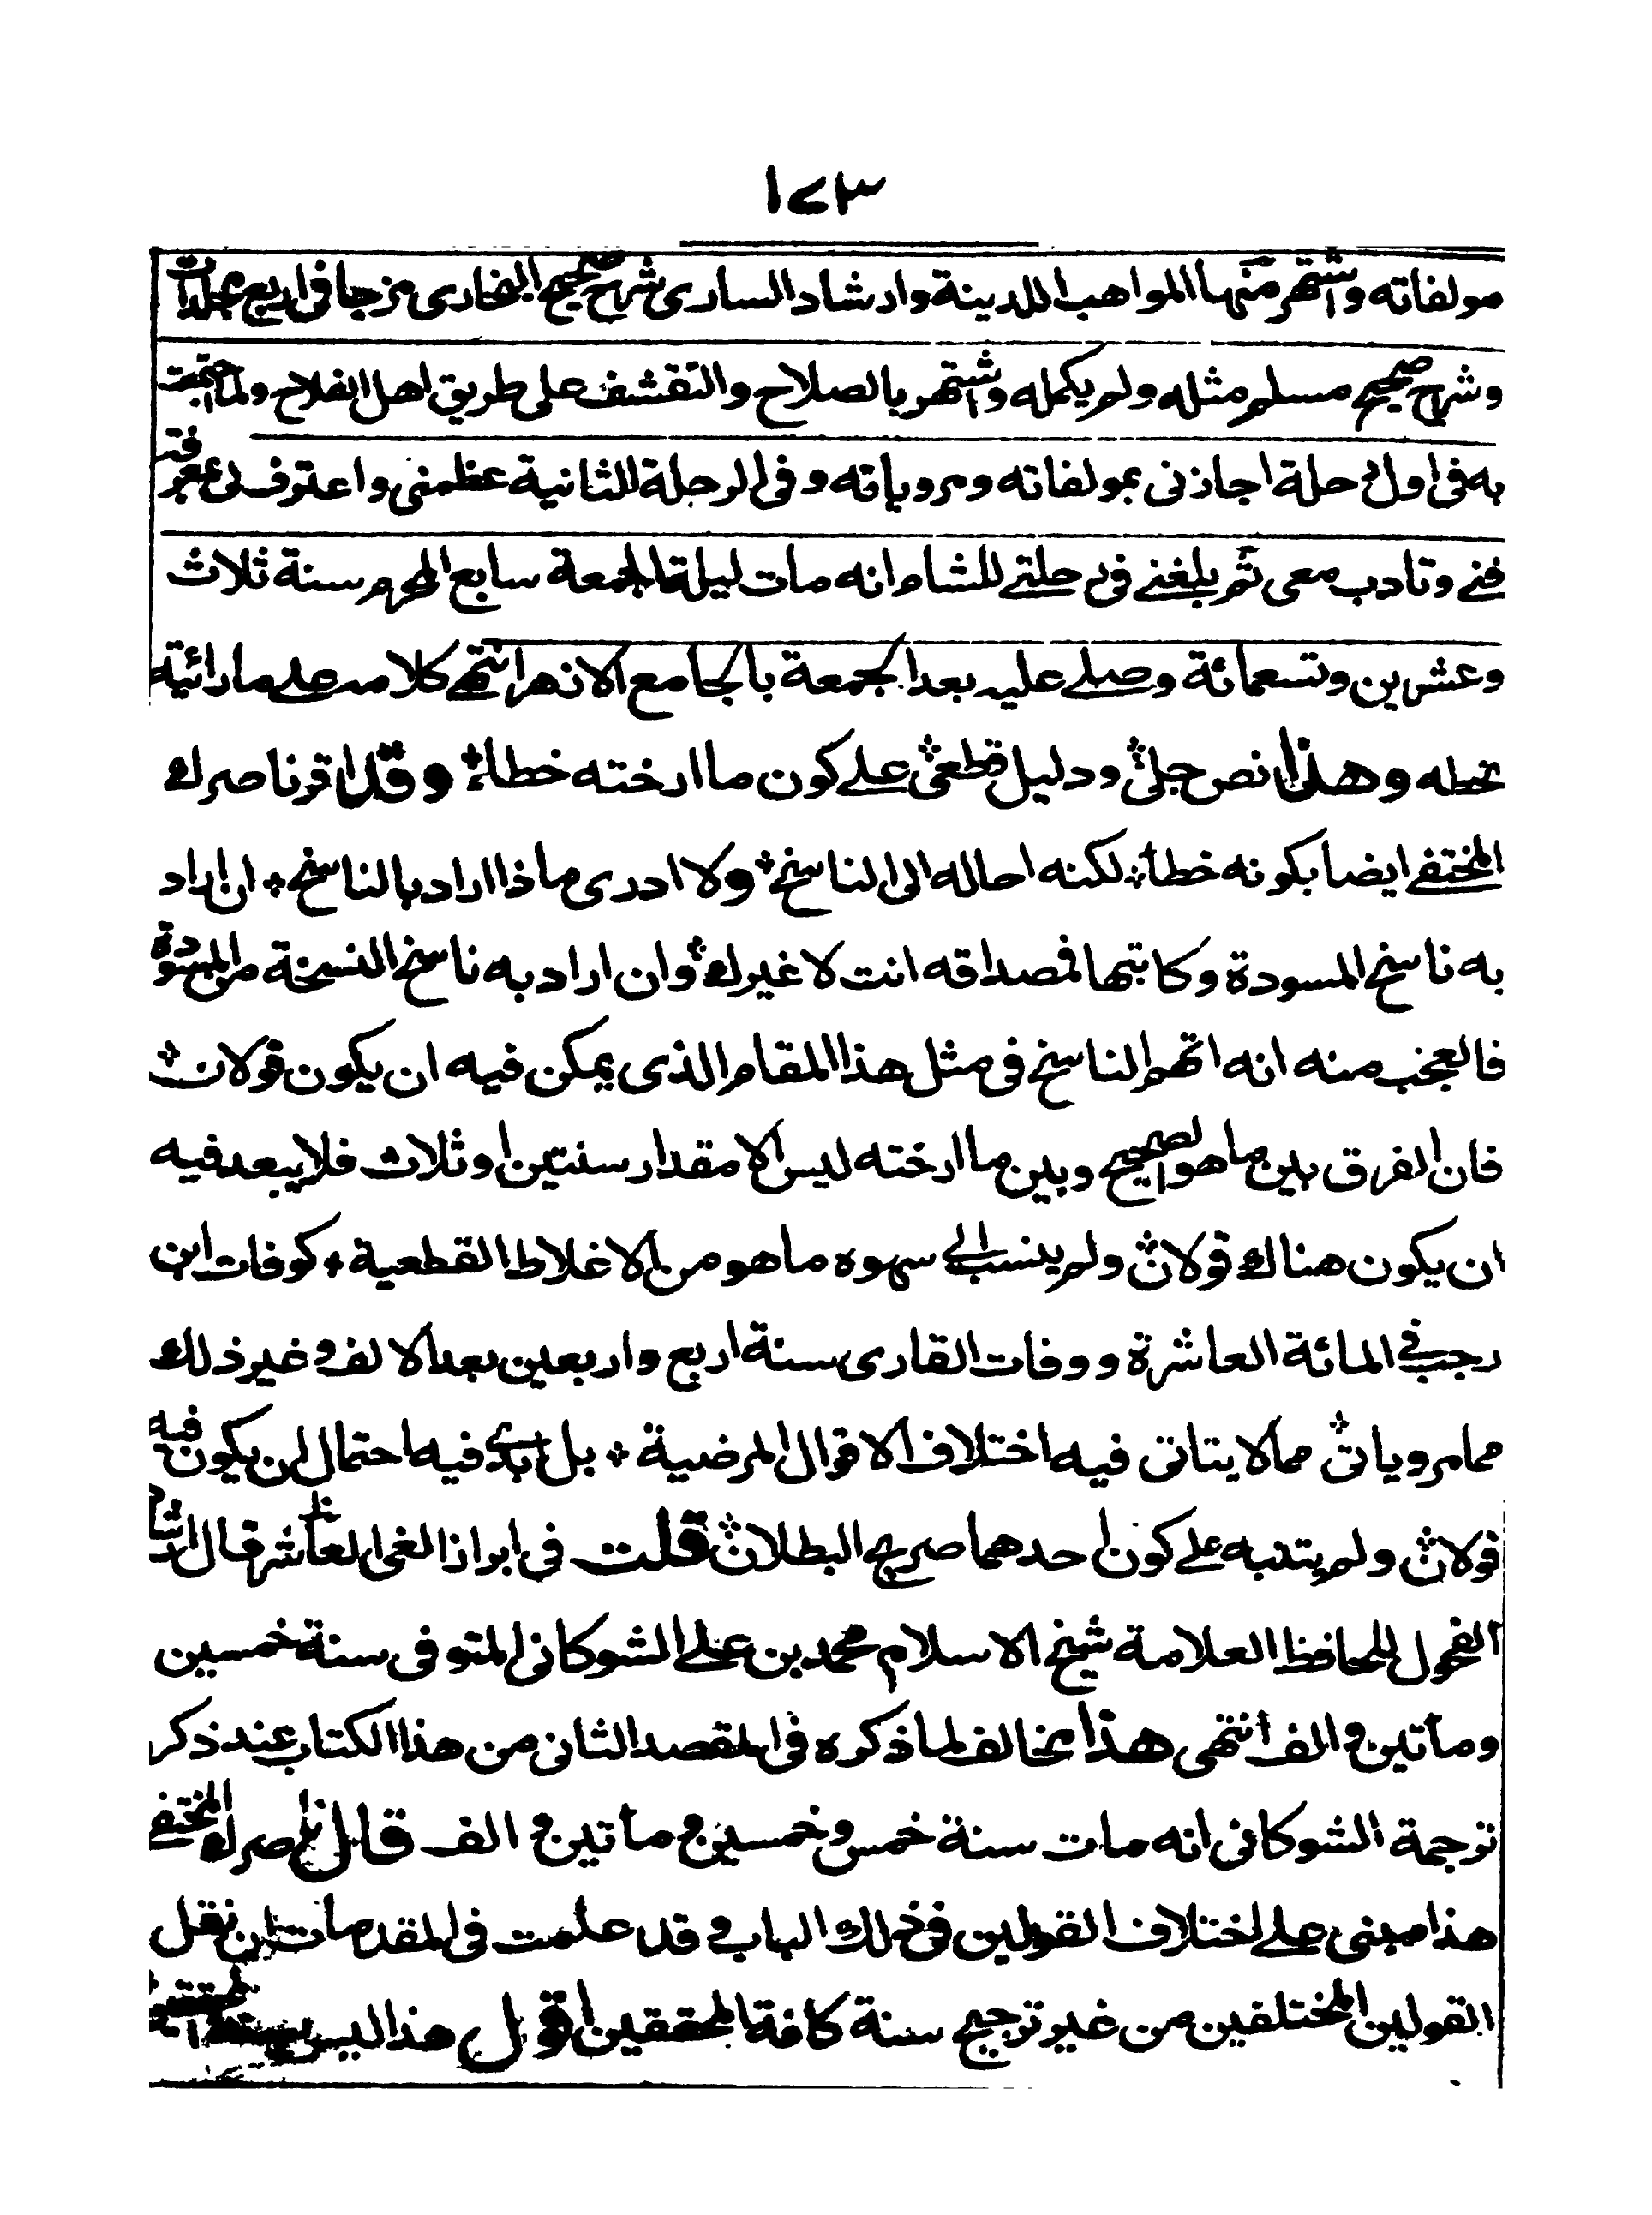 ١٧٣
مولفاته واشتهر منها المواهب اللدينة وارشاد السارى شرح صحيح البخارى مزجا فى اربع مجلدات
وشرح صحيح مسلم مثله ولم يكمله واشتهر بالصلاح والتقشف على طريق اهل الفلاح ولما اجتمعت
به فى اول رحلة اجازنى بمولفاته ومروياته وفى الرحلة الثانية عظمنى واعترف لى بمعرفة
فنى وتادب معى ثم بلغنى فى رحلتى للشام انه مات ليلة الجمعة سابع المحرم سنة ثلاث
وعشرين وتسعمائة وصلى عليه بعد الجمعة بالجامع الازهر انتهى كلامه على ما رائيته
بخطه وهذا نص جلى ودليل قطعى على كون ما ارخته خطاء وقد اقر ناصرك
المختفى ايضا بكونه خطأ لكنه احاله الى الناسخ ولا ادرى ماذا اراد بالناسخ ان اراد
به ناسخ المسودة وكاتبها فمصداقه انت لا غيرك وان اراد به ناسخ النسخة من المسودة
فالعجب منه انه اتهم الناسخ فى مثل هذا المقام الذى يمكن فيه ان يكون قولان
فان الفرق بين ما هو الصحيح وبين ما ارخته ليس الا مقدار سنتين او ثلاث فلا يبعد فيه
ان يكون هناك قولان ولم ينسب الى سهوه ما هو من الاغلاط القطعية كوفات ابن
رجب فى المائة العاشرة ووفات القارى سنة اربع واربعين بعد الالف وغير ذلك
مما مر وياتى مما لا يتاتى فيه اختلاف الاقوال المرضية بل ابدى فيه احتمال ان يكون فيه
قولان ولم يتنبه على كون احدهما صريح البطلان قلت فى ابراز الغى العاشر قال ارشاد
الفحول للحافظ العلامة شيخ الاسلام محمد بن على الشوكانى المتوفى سنة خمسين
ومأتين والف انتهى هذا يخالف لما ذكره فى المقصد الثانى من هذا الكتاب عند ذكر
ترجمة الشوكانى انه مات سنة خمس وخمسين ومأتين والف قال ناصرك المختفى
هذا مبنى على اختلاف القولين فى ذلك الباب وقد علمت فى المقدمات ان نقل
القولين المختلفين من غير ترجيح سنة كافة المحققين اقول هذا ليس